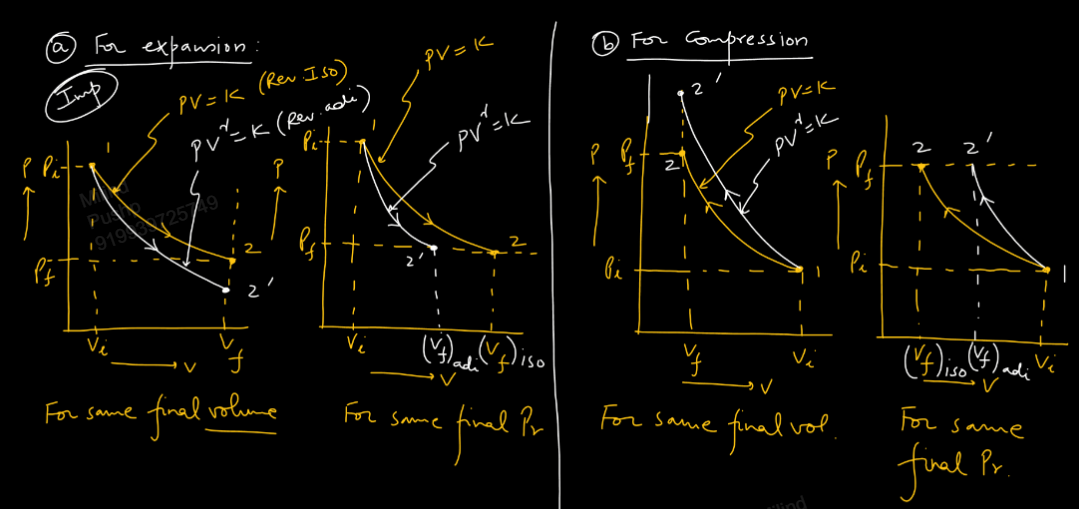 (a) For expansion:
Imp
PV = K (Rev. Iso)
PV^γ = K (Rev. adi)
P
Pi
1
2
2'
Pf
Vi
Vf
→ V
For same final volume
PV = K
PV^γ = K
P
Pi
1
Pf
2'
2
Vi
(Vf)adi
(Vf)iso
→ V
For same final Pr
(b) For Compression
2'
PV = K
PV^γ = K
P
Pf
2
Pi
1
Vf
Vi
→ V
For same final vol.
P
Pf
2
2'
Pi
1
(Vf)iso
(Vf)adi
Vi
→ V
For same
final Pr.